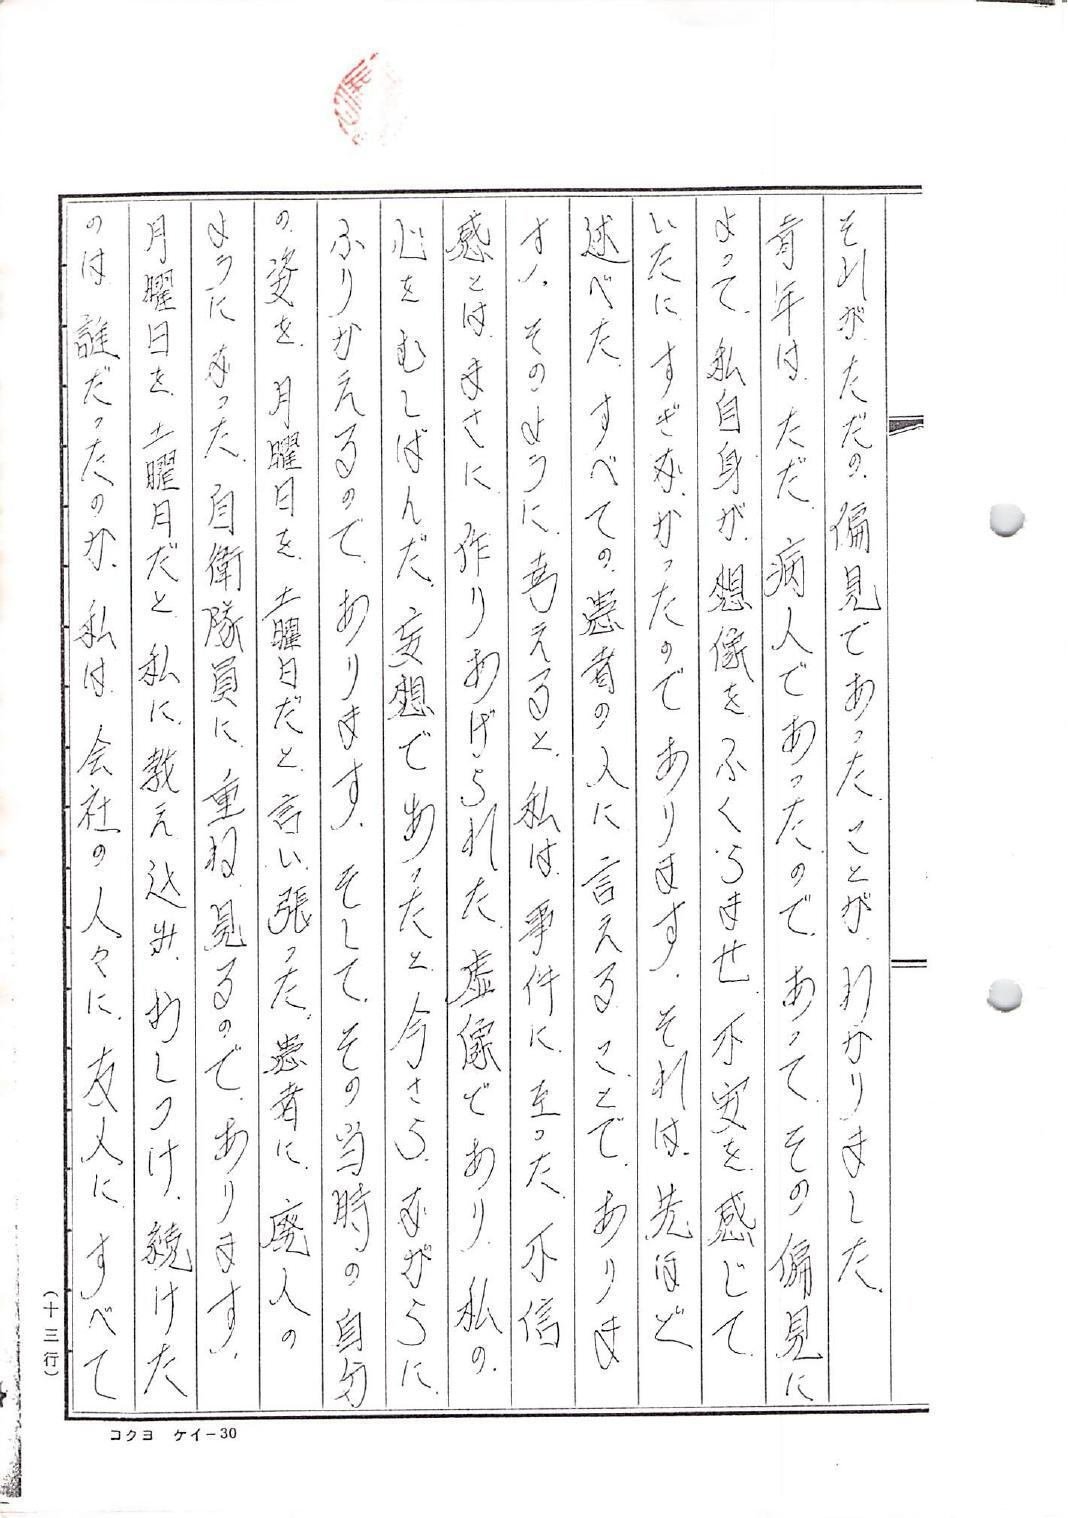 それがただの偏見であったことがわかりました
青年はただ病人であったのであってその偏見に
よって私自身が想像をふくらませ不安を感じて
いたにすぎなかったのであります、それは先ほど
述べたすべての患者の人に言えることでありま
す、そのように考えると私は事件に至った不信
感とはまさに作りあげられた虚像であり私の
心をむしばんだ妄想であったと今さらながらに
ふりかえるのであります、そしてその当時の自分
の姿を月曜日を土曜日だと言い張った患者に廃人の
ようになった自衛隊員に重ね見るのであります、
月曜日を土曜月だと私に教え込みおしつけ続けた
のは誰だったのか、私は会社の人々に友人にすべて
(十三行)
コクヨ ケイー30